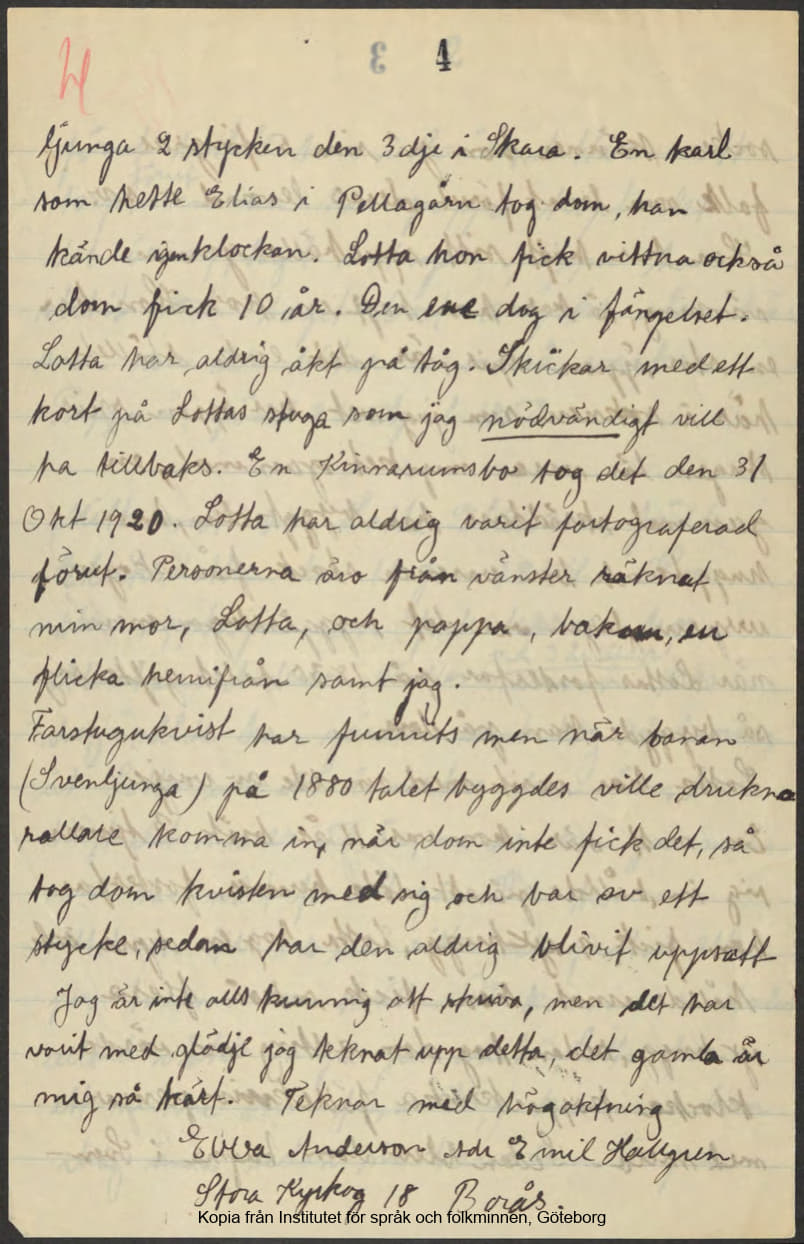 4
4
ljunga 2 stycken den 3dje i Skara. En karl
som hette Elias i Pellagårn tog dom, han
kände igen klockan. Lotta hon fick vittna också
dom fick 10 år. Den ene dog i fängelset.
Lotta har aldrig åkt på tåg. Skickar med ett
kort på Lottas stuga som jag nödvändigt vill
ha tillbaks. En Kinnarumsbo tog det den 31
Okt 1920. Lotta har aldrig varit fortograferad
förut. Personerna äro från vänster räknat
min mor, Lotta, och pappa, bakom, en
flicka hemifrån samt jag.
Farstugukvist har funnits men när banan
(Svenljunga) på 1880 talet byggdes ville drukna
rallare komma in, när dom inte fick det, så
tog dom kvisten med sig och bar av ett
stycke, sedan har den aldrig blivit uppsatt
Jag är inte alls kunnig att skriva, men det har
varit med glädje jag teknat upp detta, det gamla är
mig så kärt. Teknar med högaktning
Ebba Anderson adr Emil Hallgren
Stora Kyrkog 18 Borås.
Kopia från Institutet för språk och folkminnen, Göteborg